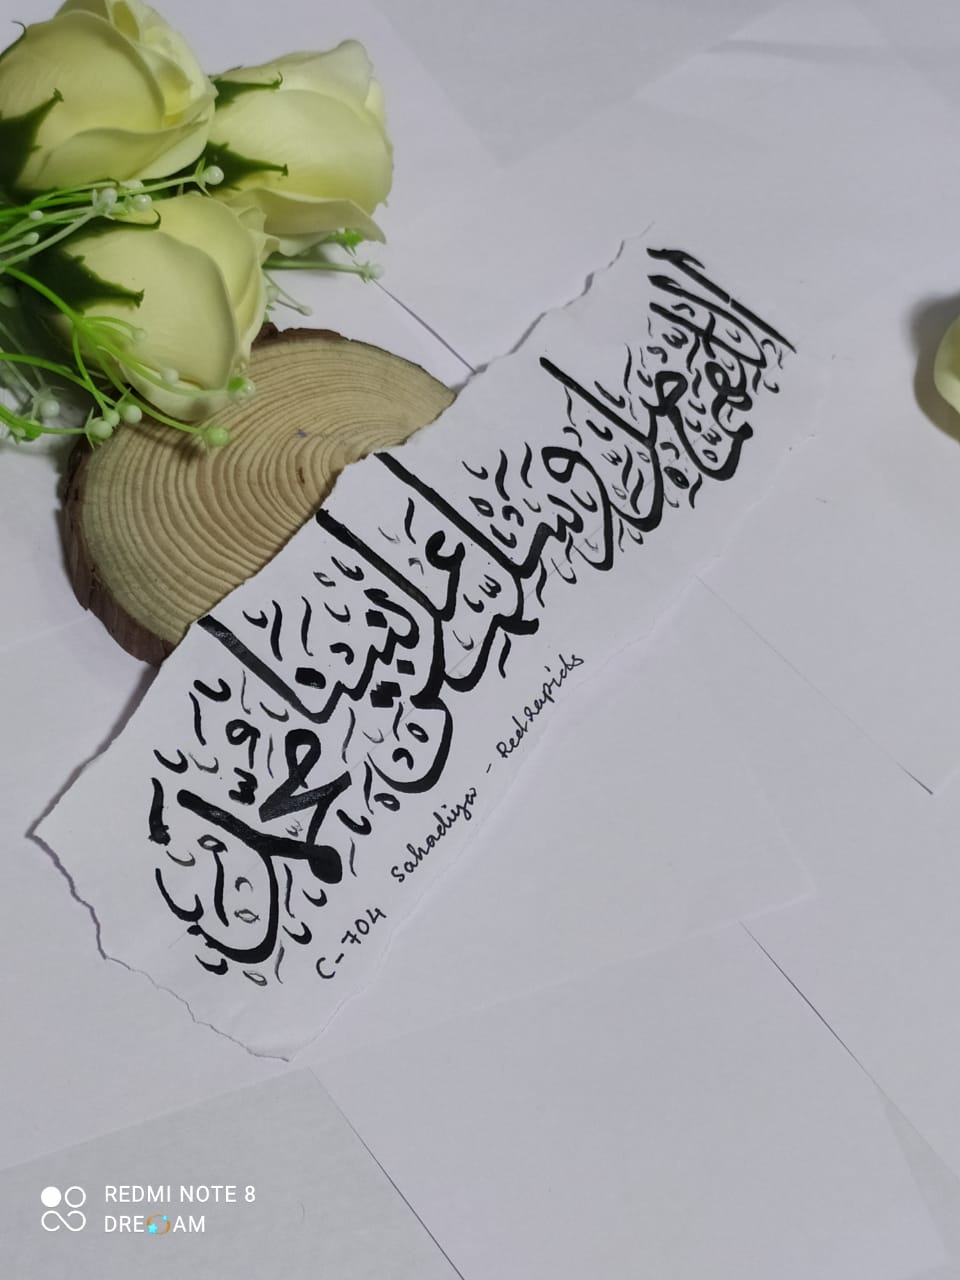 اللهم صل وسلم على نبينا محمد
C-704 Sahadiya - Redrapids
REDMI NOTE 8
DREAM